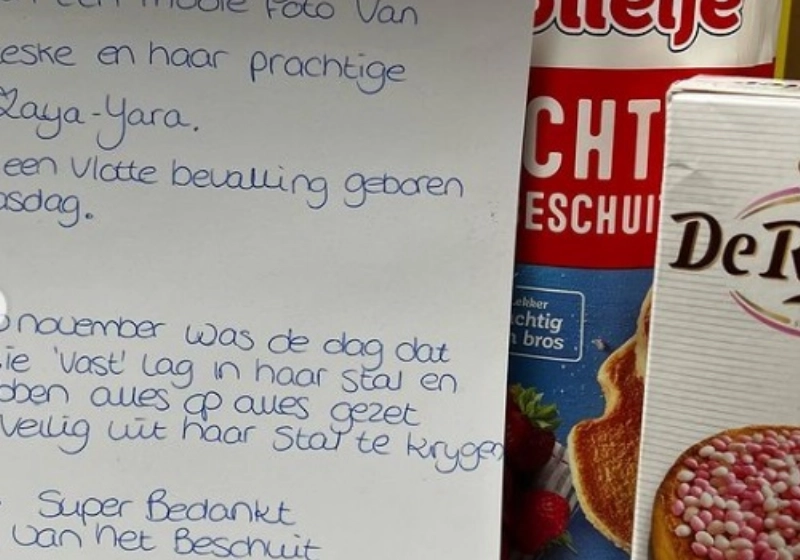 een mooie foto van
eske en haar prachtige
Zaya-Yara.
een vlotte bevalling geboren
sdag.
november was de dag dat
ie 'vast' lag in haar stal en
bben alles op alles gezet
veilig uit haar stal te krygen
Super Bedankt
van het Beschuit
olletje
CHT
ESCHUI
Lekker
chtig
n bros
De R